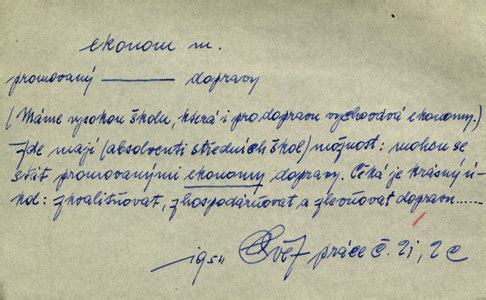 ekonom m.
promovaný ——— dopravy
(Máme vysokou školu, která i pro dopravu vychovává ekonomy.)
Zde mají (absolventi středních škol) možnost: mohou se
stát promovanými ekonomy dopravy. Čeká je krásný ú-
kol: zkvalitňovat, zhospodárňovat a zlevňovat dopravu......
Svět práce č. 21, 2